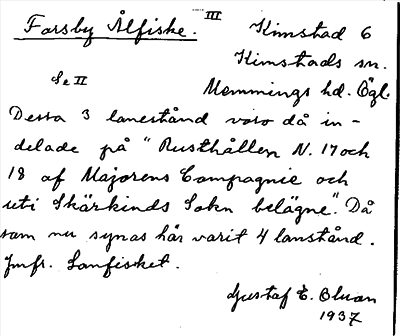 Farsby Ålfiske. III Kimstad 6
Kimstads sn.
Se II Memmings hd. Ögl.
Dessa 3 lanestånd voro då in-
delade på "Rusthållen N. 17 och
18 af Majorens Compagnie och
uti Skärkinds Sokn belägne". Då
som nu synas här varit 4 lanstånd.
Jmfr. Lanfisket.
Gustaf E. Bluan
1937